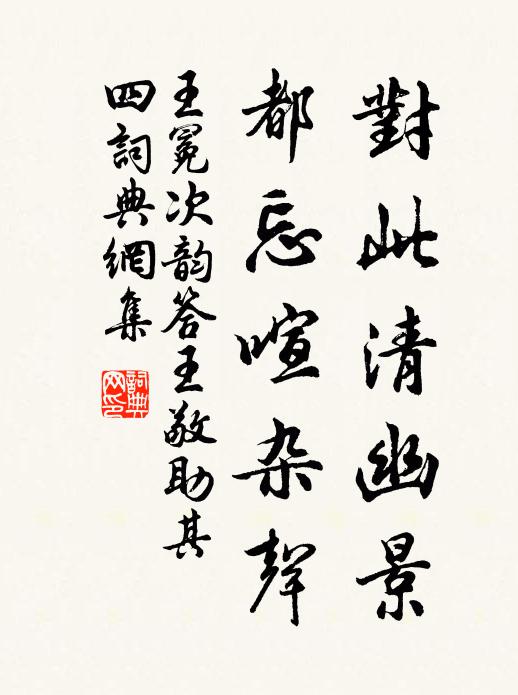 對此清幽景
都忘喧杂聲
王冕次韵答王敬助其
四詞典網集
詞典
网印